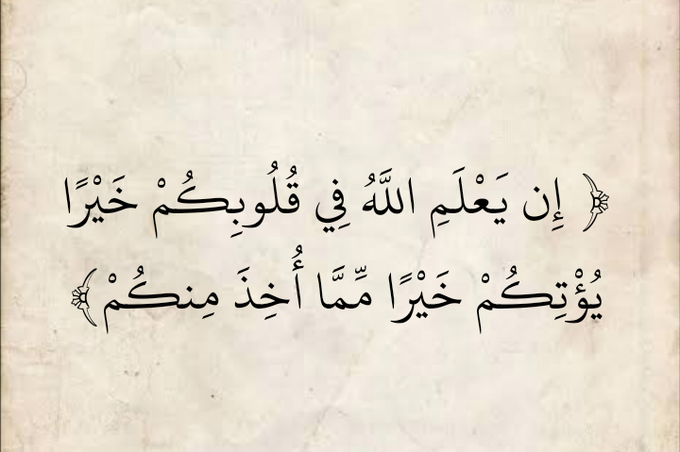 ﴿ إِن يَعْلَمِ اللَّهُ فِي قُلُوبِكُمْ خَيْرًا
يُؤْتِكُمْ خَيْرًا مِّمَّا أُخِذَ مِنكُمْ ﴾